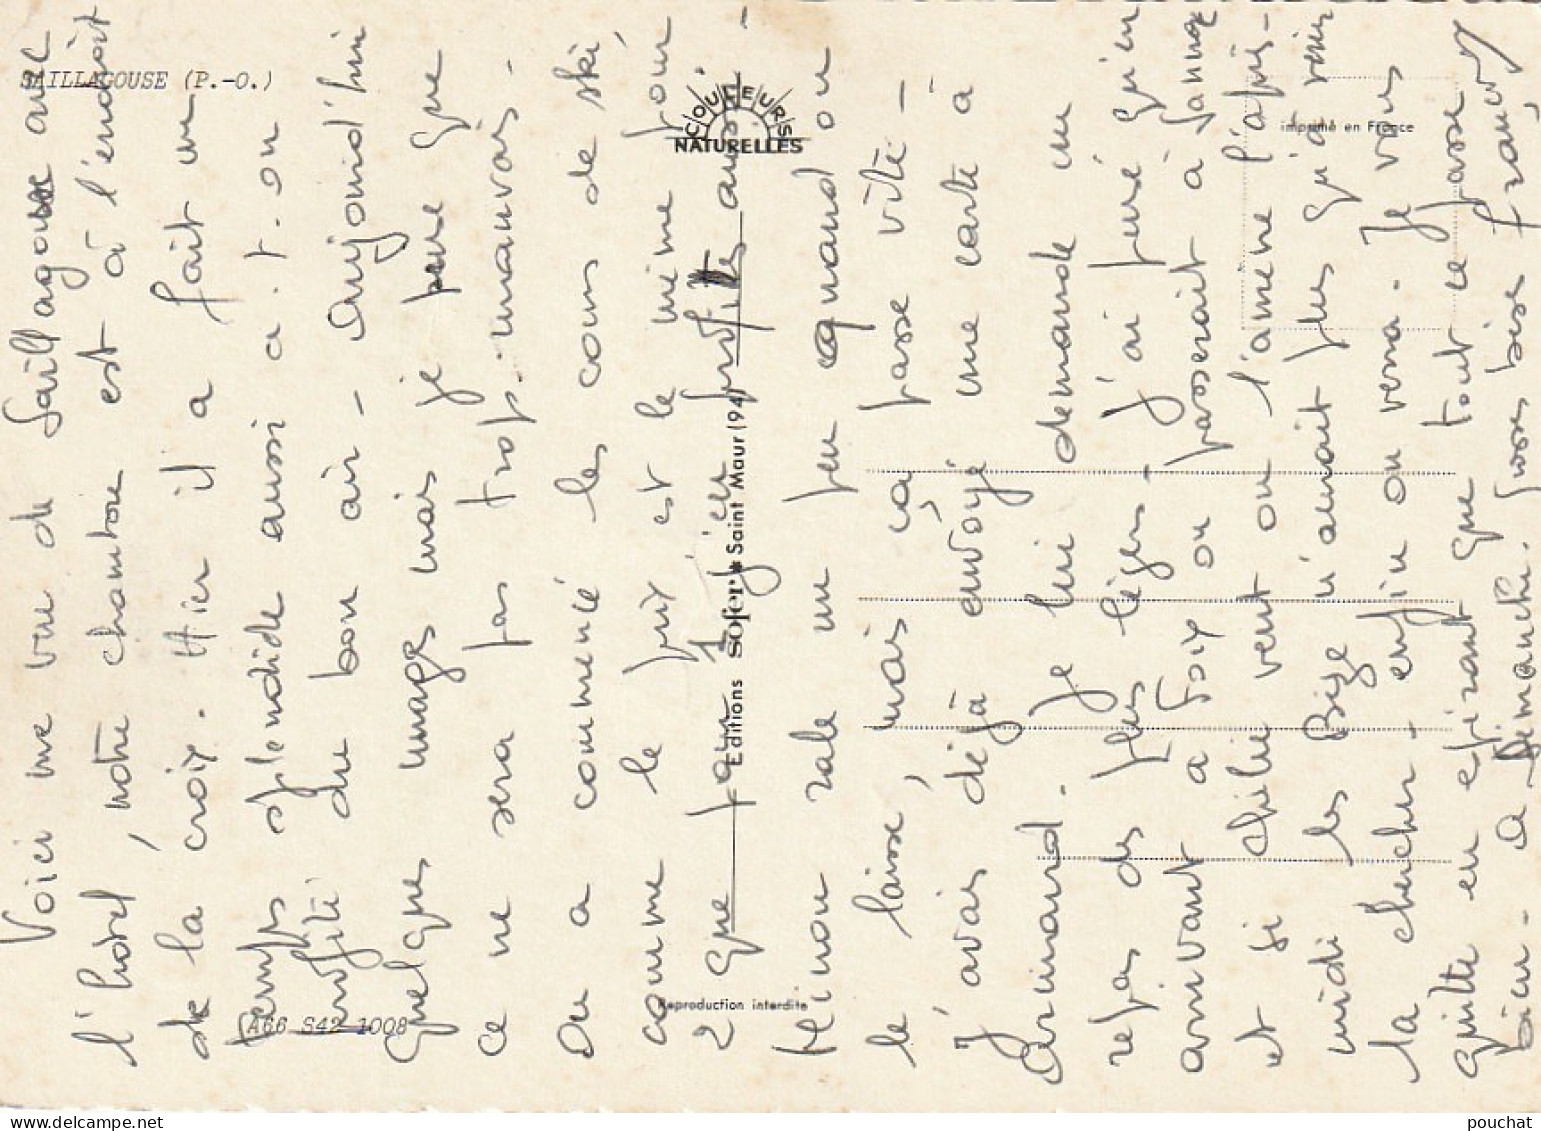 SAILLAGOUSE (P.-O.)
COULEURS
NATURELLES
imprimé en France
Editions Sofer ★ Saint Maur (94)
Reproduction interdite
A66 S42 1008
Voici une vue de Saillagouse avec
l'hotel, notre chambre est à l'endroit
de la croix. Hier il a fait un
temps splendide aussi a.t.on
profité du bon air - Aujourd'hui
quelques nuages mais je pense que
ce ne sera pas trop mauvais -
On a commencé les cours de ski,
comme le prix est le même pour
2 que pour 1 j'en profites aussi -
Minou rale un peu quand on
le laisse, mais ça passe vite -
J'avais déjà envoyé une carte à
Armand. Je lui demande un
repas des plus légers - J'ai pensé qu'en
arrivant à Foix on passerait à
et si Emilie veut on l'amène l'après-
midi les Bize n'aurait plus qu'à venir
la chercher - enfin on verra. Je vous
quitte en espérant que tout se passe
bien - A Dimanche. Grosses bises Francis
pouchat